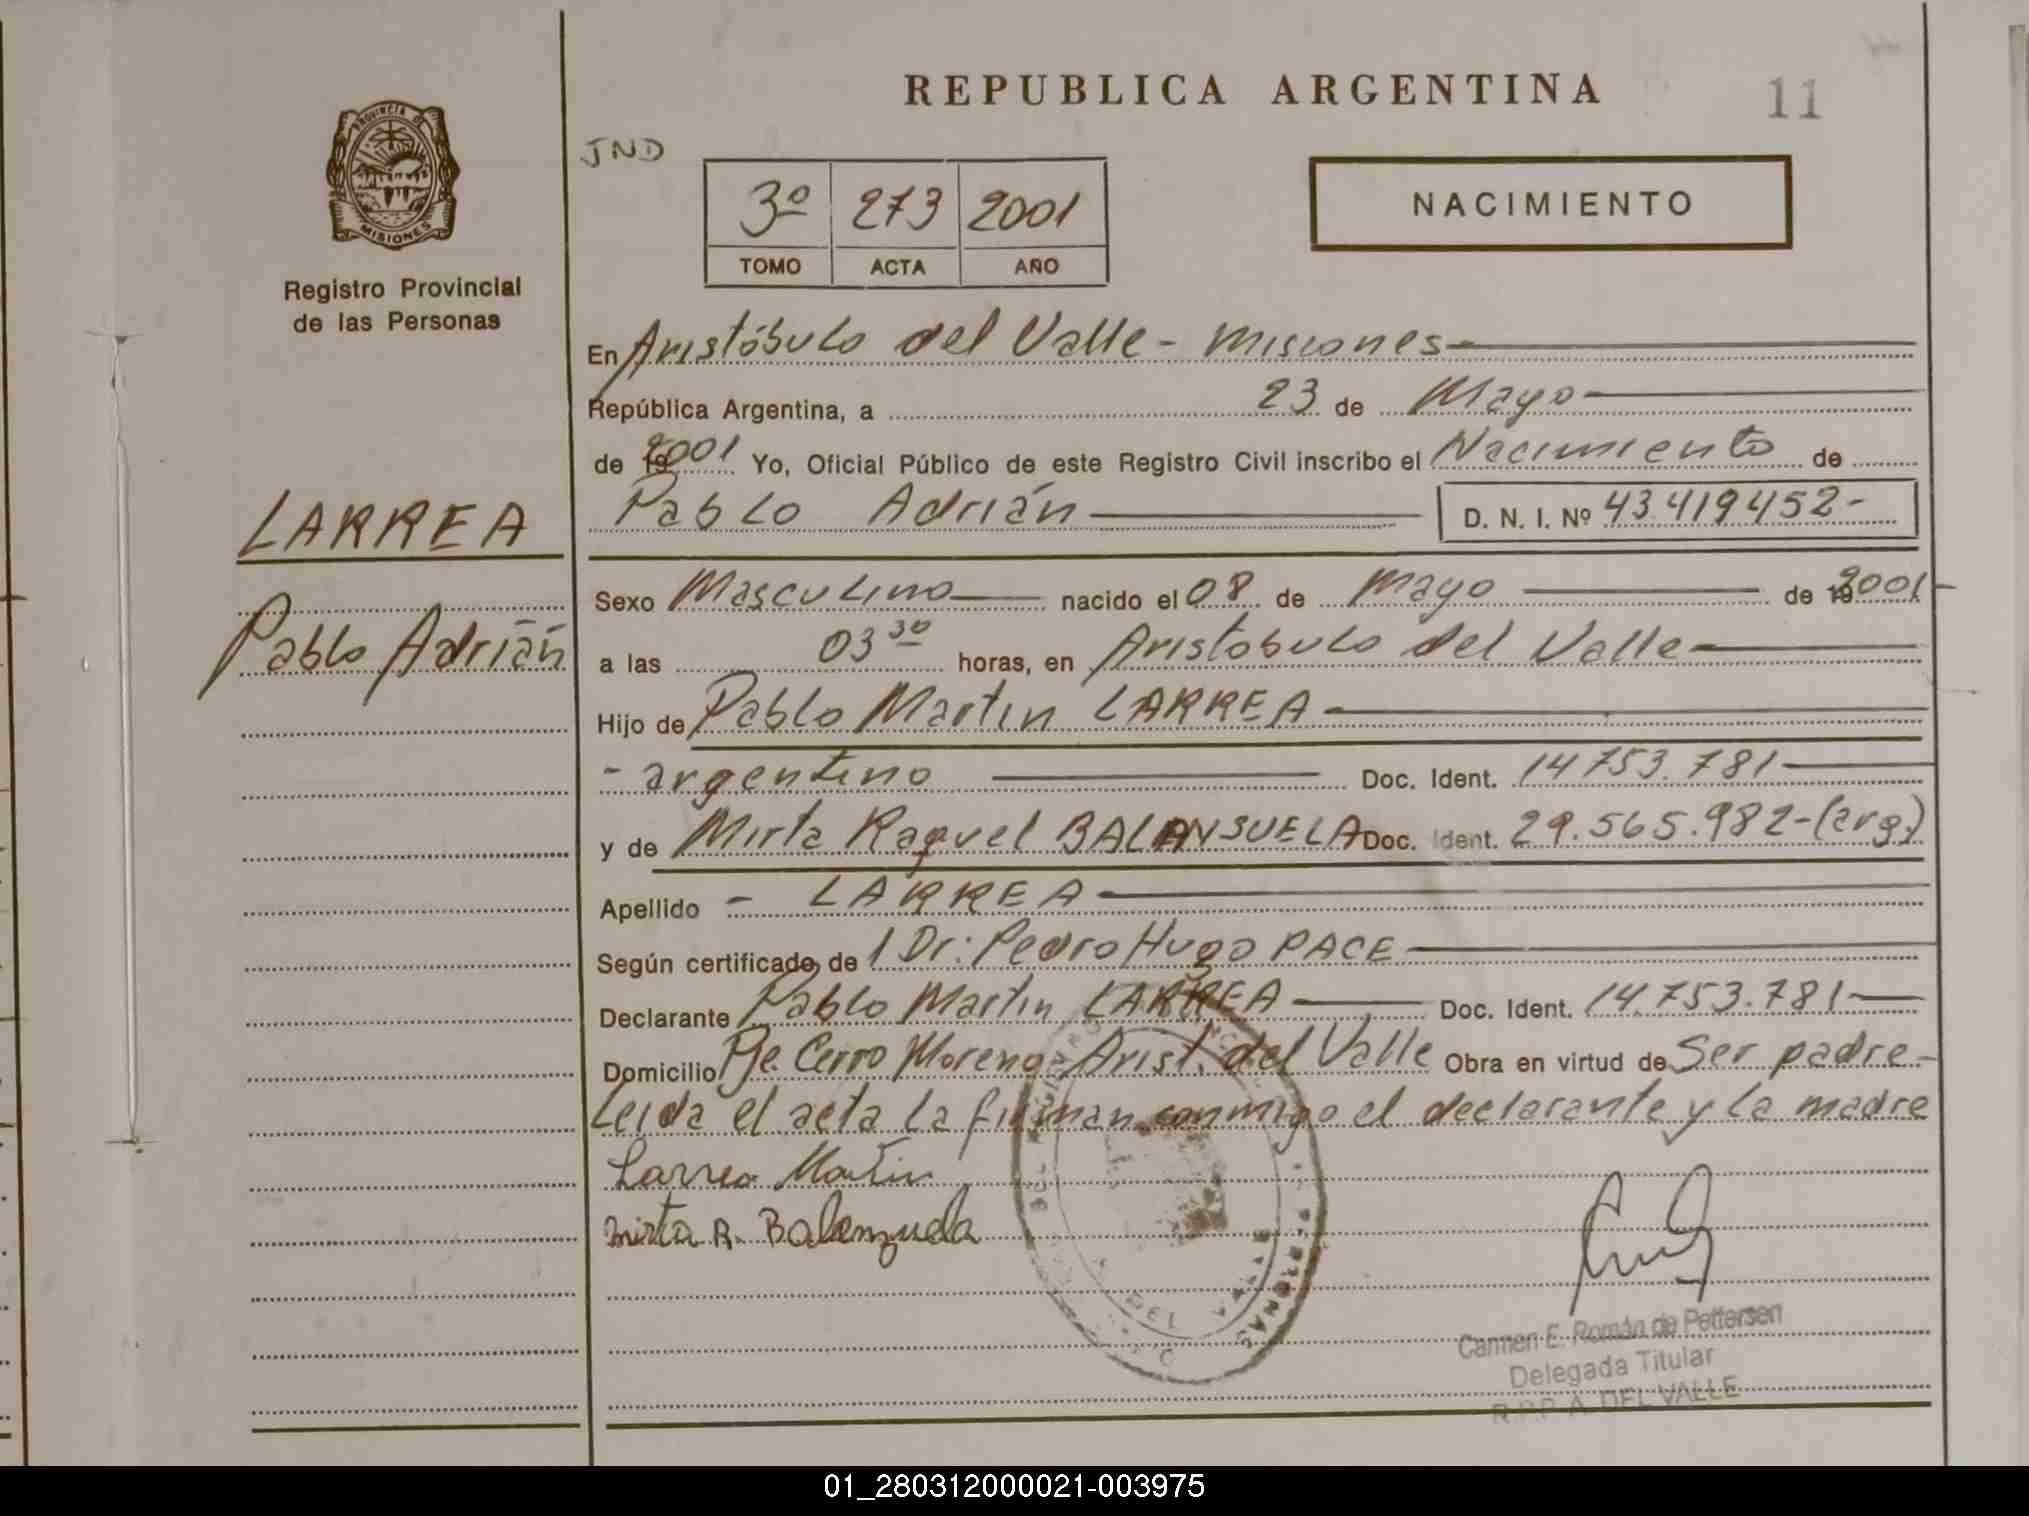 REPUBLICA ARGENTINA
11
PROVINCIA DE
MISIONES
Registro Provincial
de las Personas
JND
3º 273 2001
TOMO ACTA AÑO
NACIMIENTO
LARREA
Pablo Adrián
En Aristóbulo del Valle - Misiones
República Argentina, a 23 de Mayo
de 2001 Yo, Oficial Público de este Registro Civil inscribo el Nacimiento de
Pablo Adrián D. N. I. Nº 43.419452-
Sexo Masculino nacido el 08 de Mayo de 2001-
a las 03 30 horas, en Aristobulo del Valle
Hijo de Pablo Martin LARREA
- argentino Doc. Ident. 14753.781
y de Mirta Raquel BALANSUELA Doc. Ident. 29.565.982-(arg.)
Apellido - LARREA
Según certificado de l Dr: Pedro Hugo PACE
Declarante Pablo Martin LARREA Doc. Ident. 14.753.781
Domicilio Pje. Cerro Moreno Arist. del Valle Obra en virtud de Ser padre-
Leida el acta la firman conmigo el declarante y la madre
Larrea Martin
mirta R. Balenzuela
DEL VALLE
Carmen E. Román de Pettersen
Delegada Titular
R.P.P. A. DEL VALLE
01_280312000021-003975